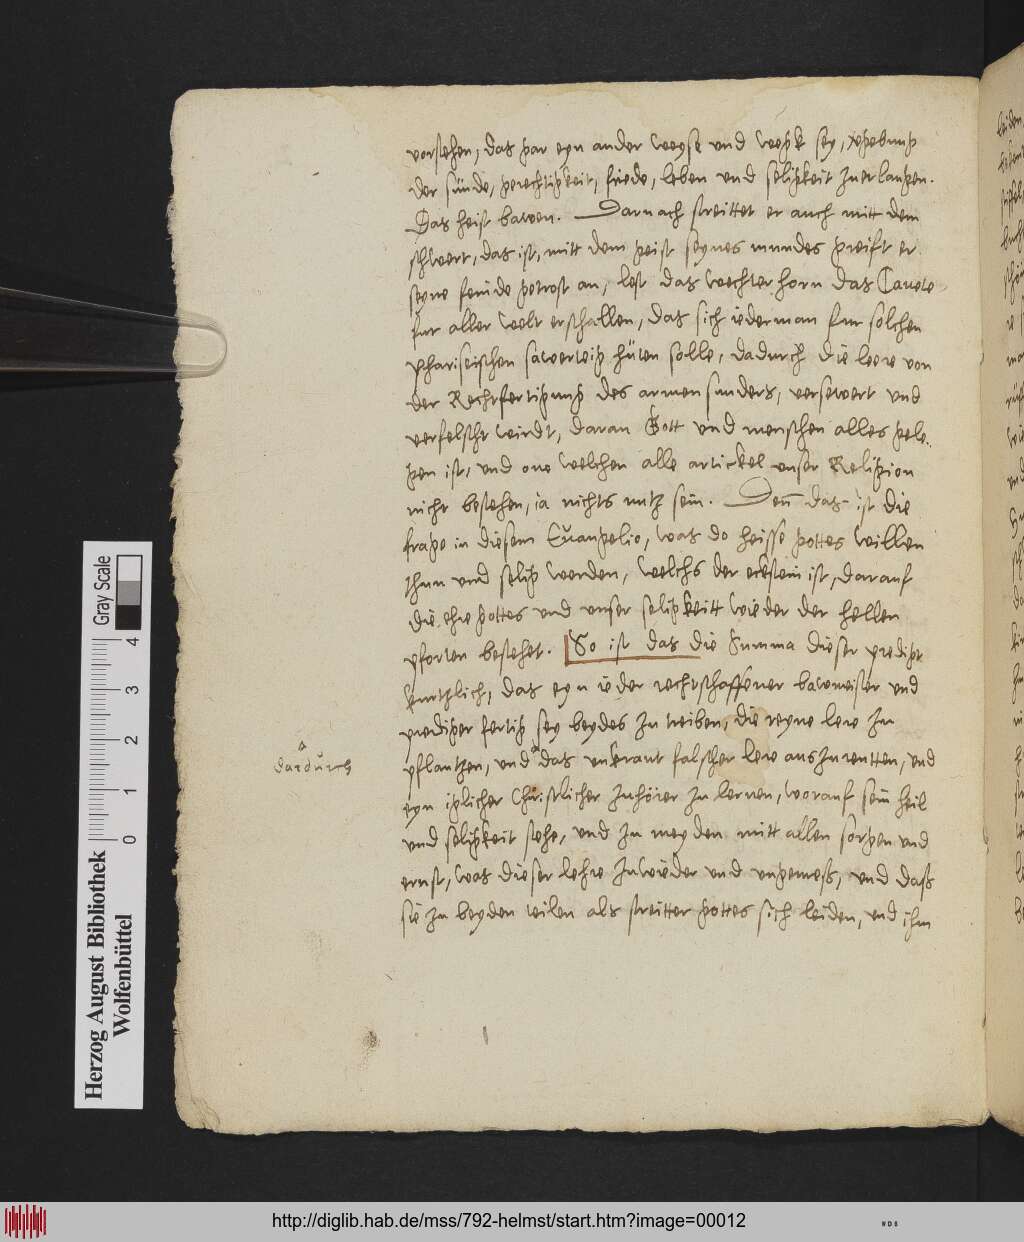 vorstehen, das gar eyn ander weyse und wegk sey, vergebung
der sünde, gerechtigkeit, friede, leben und seligkeit zu erlangen.
Das heist bawen. Darnach streittet er auch mitt dem
schwert, das ist, mitt dem geist seynes mundes greift er
seyne feinde getrost an, lest das wechter horn das Cavete
fur aller welt erschallen, das sich iederman fur solchen
phariseischen sawerteig hüten solle, dadurch die leere von
der Rechtfertigung des armen sunders, versewert und
verfelscht wirdt, daran Gott und menschen alles gele-
gen ist, und one welchen alle artickel unser Religion
nicht bestehen, ia nichts nutz sein. Denn das ist die
frage in diesem Evangelio, was do heisse gottes willen
thun und selig werden, welchs der eckstein ist, darauf
die ehre gottes und unser seligkeitt wieder der hellen
pforten bestehet. So ist das die Summa dieser predigt
kurtzlich, das eyn ieder rechtschaffener bawmeister und
prediger fertig sey beydes zu treiben, die reyne lere zu
pflantzen, und das unkraut falscher lere auszurentten, und
dardurch
eyn iglicher Christlicher zuhörer zu lernen, worauf sein heil
und seligkeit stehe, und zu meyden mitt allen sorgen und
ernst, was dieser lehre zuwieder und ungemeß, und daß
sie zu beyden teilen als streitter gottes sich leiden, und ihm
Herzog August Bibliothek
Wolfenbüttel
0 1 2 3 4
Gray Scale
http://diglib.hab.de/mss/792-helmst/start.htm?image=00012